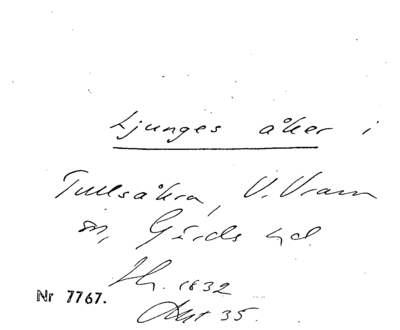 Ljunges åker i
Tullsåkra, V. Vram
sn, Gärds hd
Sk. 1832
Nr 7767.
Akt 35.